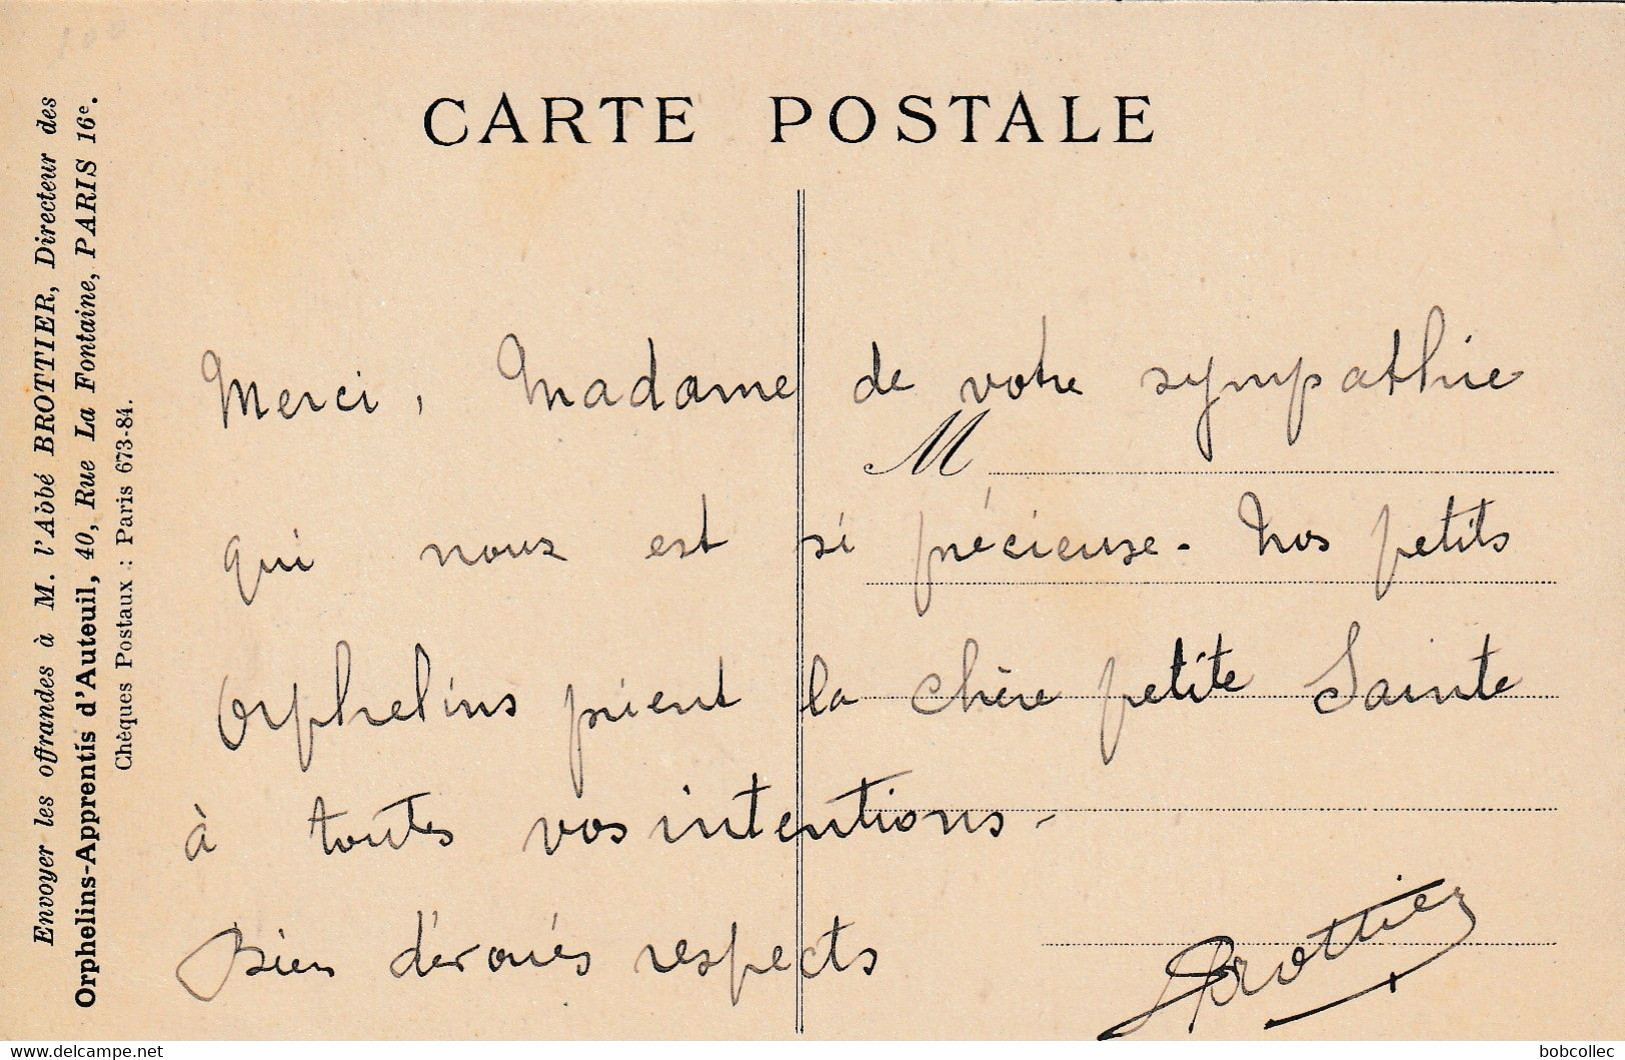 100
CARTE POSTALE
Envoyer les offrandes à M. l'Abbé BROTTIER, Directeur des
Orphelins-Apprentis d'Auteuil, 40, Rue La Fontaine, PARIS 16e.
Chèques Postaux : Paris 673-84.
Merci, Madame de votre sympathie
M
qui nous est si précieuse. Nos petits
Orphelins prient la chère petite Sainte
à toutes vos intentions.
Bien dévoués respects
Brottier
bobcollec